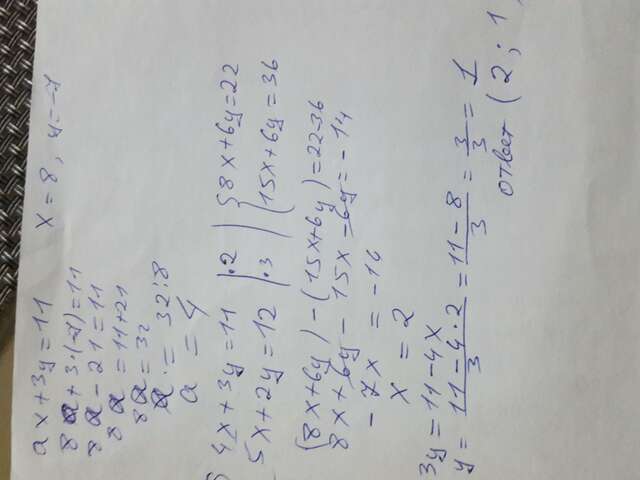 ax+3y=11 x=8, y=-7
8a+3·(-7)=11
8a-21=11
8a=11+21
8a=32
a=32:8
a=4
4x+3y=11 |·2 ) {8x+6y=22
5x+2y=12 |·3 ) {15x+6y=36
(8x+6y)-(15x+6y)=22-36
8x+6y-15x-6y=-14
-7x=-14
x=2
3y=11-4x
y=11-4·2/3=11-8/3=3/3=1
ответ (2; 1